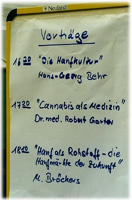 Vorträge
16⁰⁰ "Die Hanfkultur"
Hans-Georg Behr
17⁰⁰ "Cannabis als Medizin"
Dr. med. Robert Gorter
18⁰⁰ "Hanf als Rohstoff - die
Hanfmärkte der Zukunft"
M. Bröckers